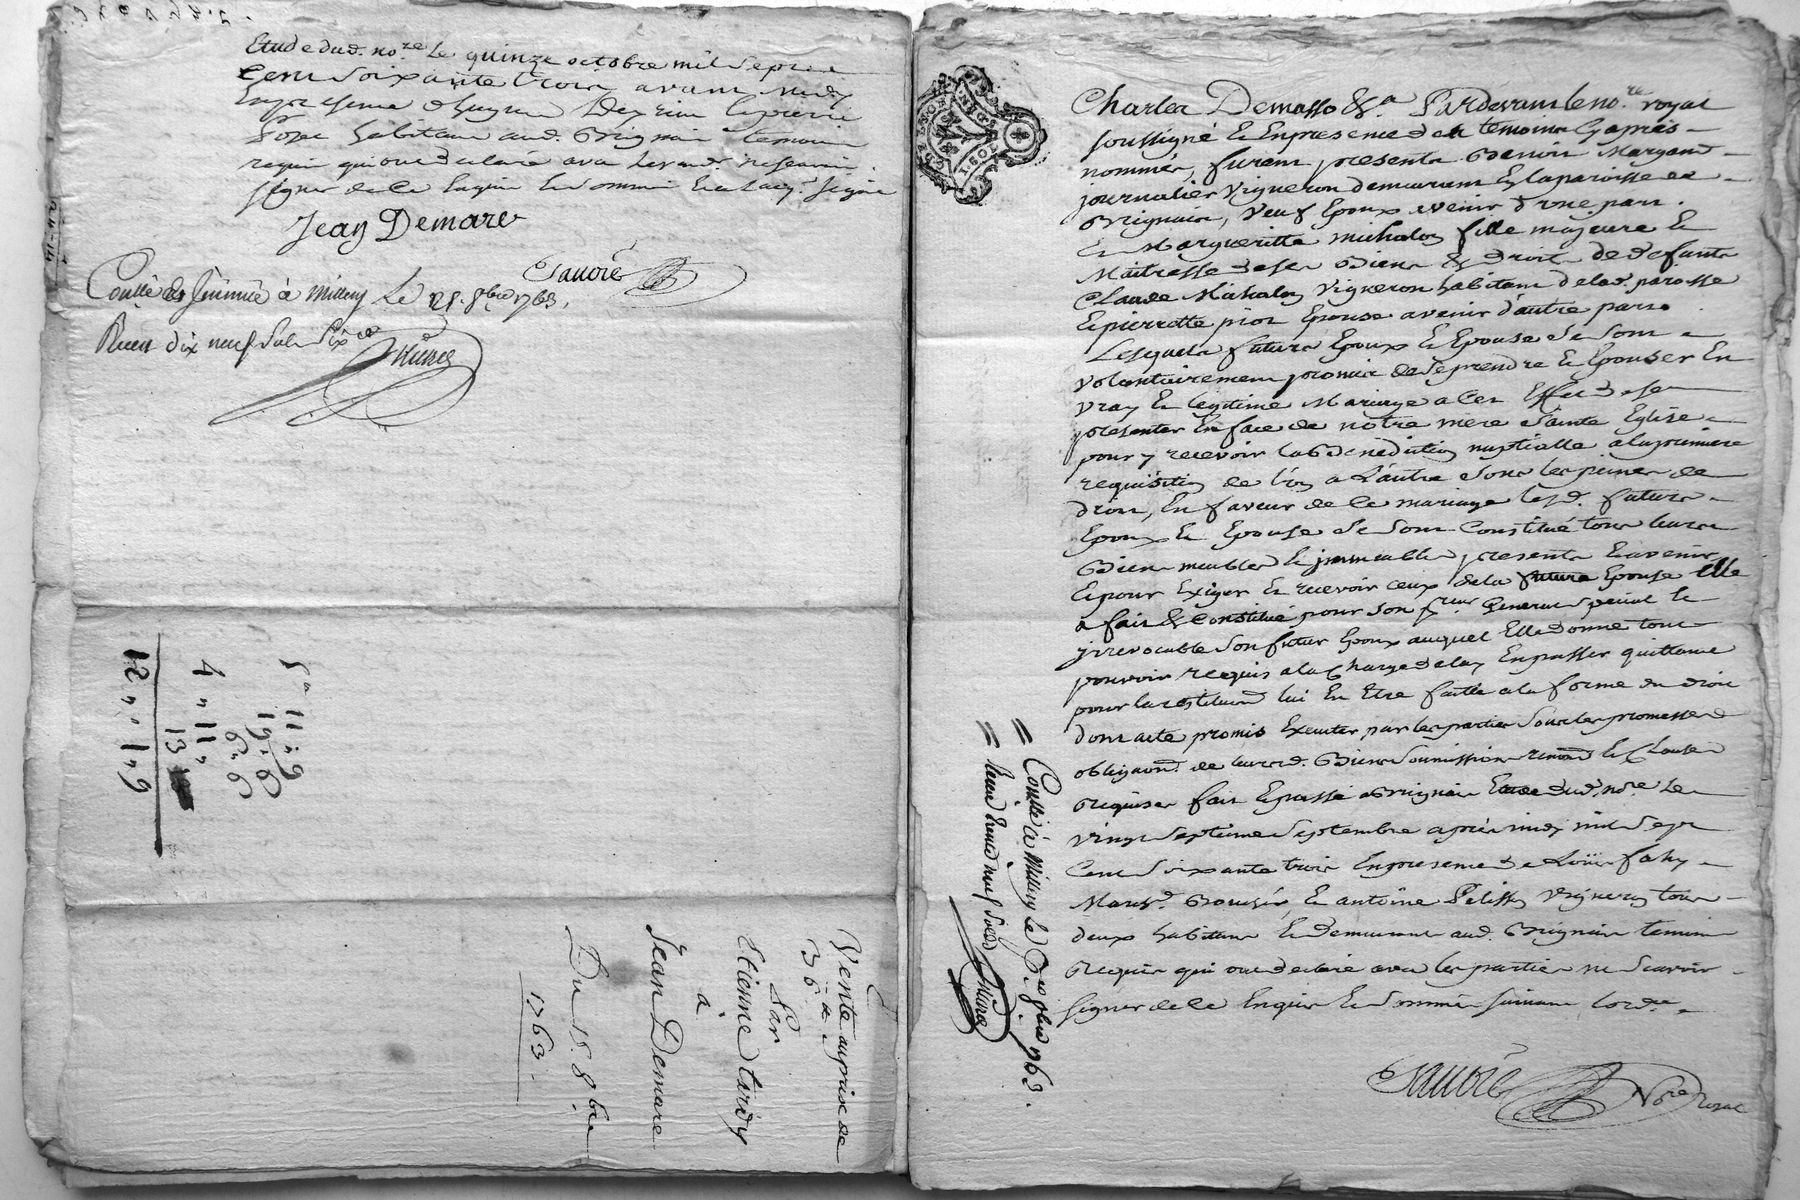 Etude dud. no.re Le quinze octobre mil sept
Cent soixante trois avant midy
En presence d'huguen
habitans aud. Brignais temoins
requis qui ont declaré avec lesvend. ne scavoir
signer de ce Enquis & sommés Et a l'acq. signé
Jean Demare
Sauvoré
Conllé & Insinué à Millery Le 25. 8bre 1763,
Recu dix neuf sols six
5 " 11 " 9
19 " 6
6 " 6
4 " 11 "
13
12 " 1 " 9
Vente au prix de
36 #
Par
Etienne tardy
à
Jean Demare
Du 15. 8bre
1763.
Charles Demasso &a Pardevant le no.re royal
soussigné & En presence des temoins Cy apres
nommés, furent presents Benoit Margand
journalier vigneron demeurant En la paroisse de
Brignais, veuf Epoux avenir d'une part.
Et Margueritte michalon fille majeure &
Maitresse de ses Biens & droits de defunts
Claude Michalon vigneron habitant de lad. paroisse
Et pierrette pior Epouse avenir d'autre part
Lesquels futurs Epoux & Epouse se sont
volontairement promis de se prendre & Epouser En
vray & legitime Mariage a cet Effet de se
presenter En face de notre mere Sainte Eglise
pour y recevoir la Benediction nuptialle a la premiere
requisition de l'un a L'autre sous les peines de
droit, En faveur de ce mariage lesd. futurs
Epoux & Epouse se sont Constitué tous leurs
Biens meubles & immeubles presents & avenir
Et pour Exiger & recevoir ceux de la future Epouse Elle
a fait & Constitué pour son preur General special &
yrrevocable son futur Epoux auquel Elle donne tout
pouvoir requis a la Charge de la En passer quittance
pour la restitution lui En Etre faitte a la forme du droit
dont acte promis Executer par les parties sous les promesses
obligaons. de leursd. Biens soumissions renons. & Clauses
requises fait & passé a Brignais Etude dud. no.re Le
vingt septieme septembre après midy mil sept
Cent soixante trois En presence de Loüis fahy
March.d & antoine Pelisson vigneron tous
deux habitans & demeurans aud. Brignais temoins
requis qui ont declaré avec les parties ne scavoir
signer de ce Enquis & sommés suivant l'ord.ce
Sauvoré No.re royal
Conllé à Millery le 8bre 1763.
Recu neuf sols